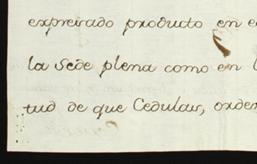 expresado producto en e
la Sede plena como en l
tud de que Cedulas, orden